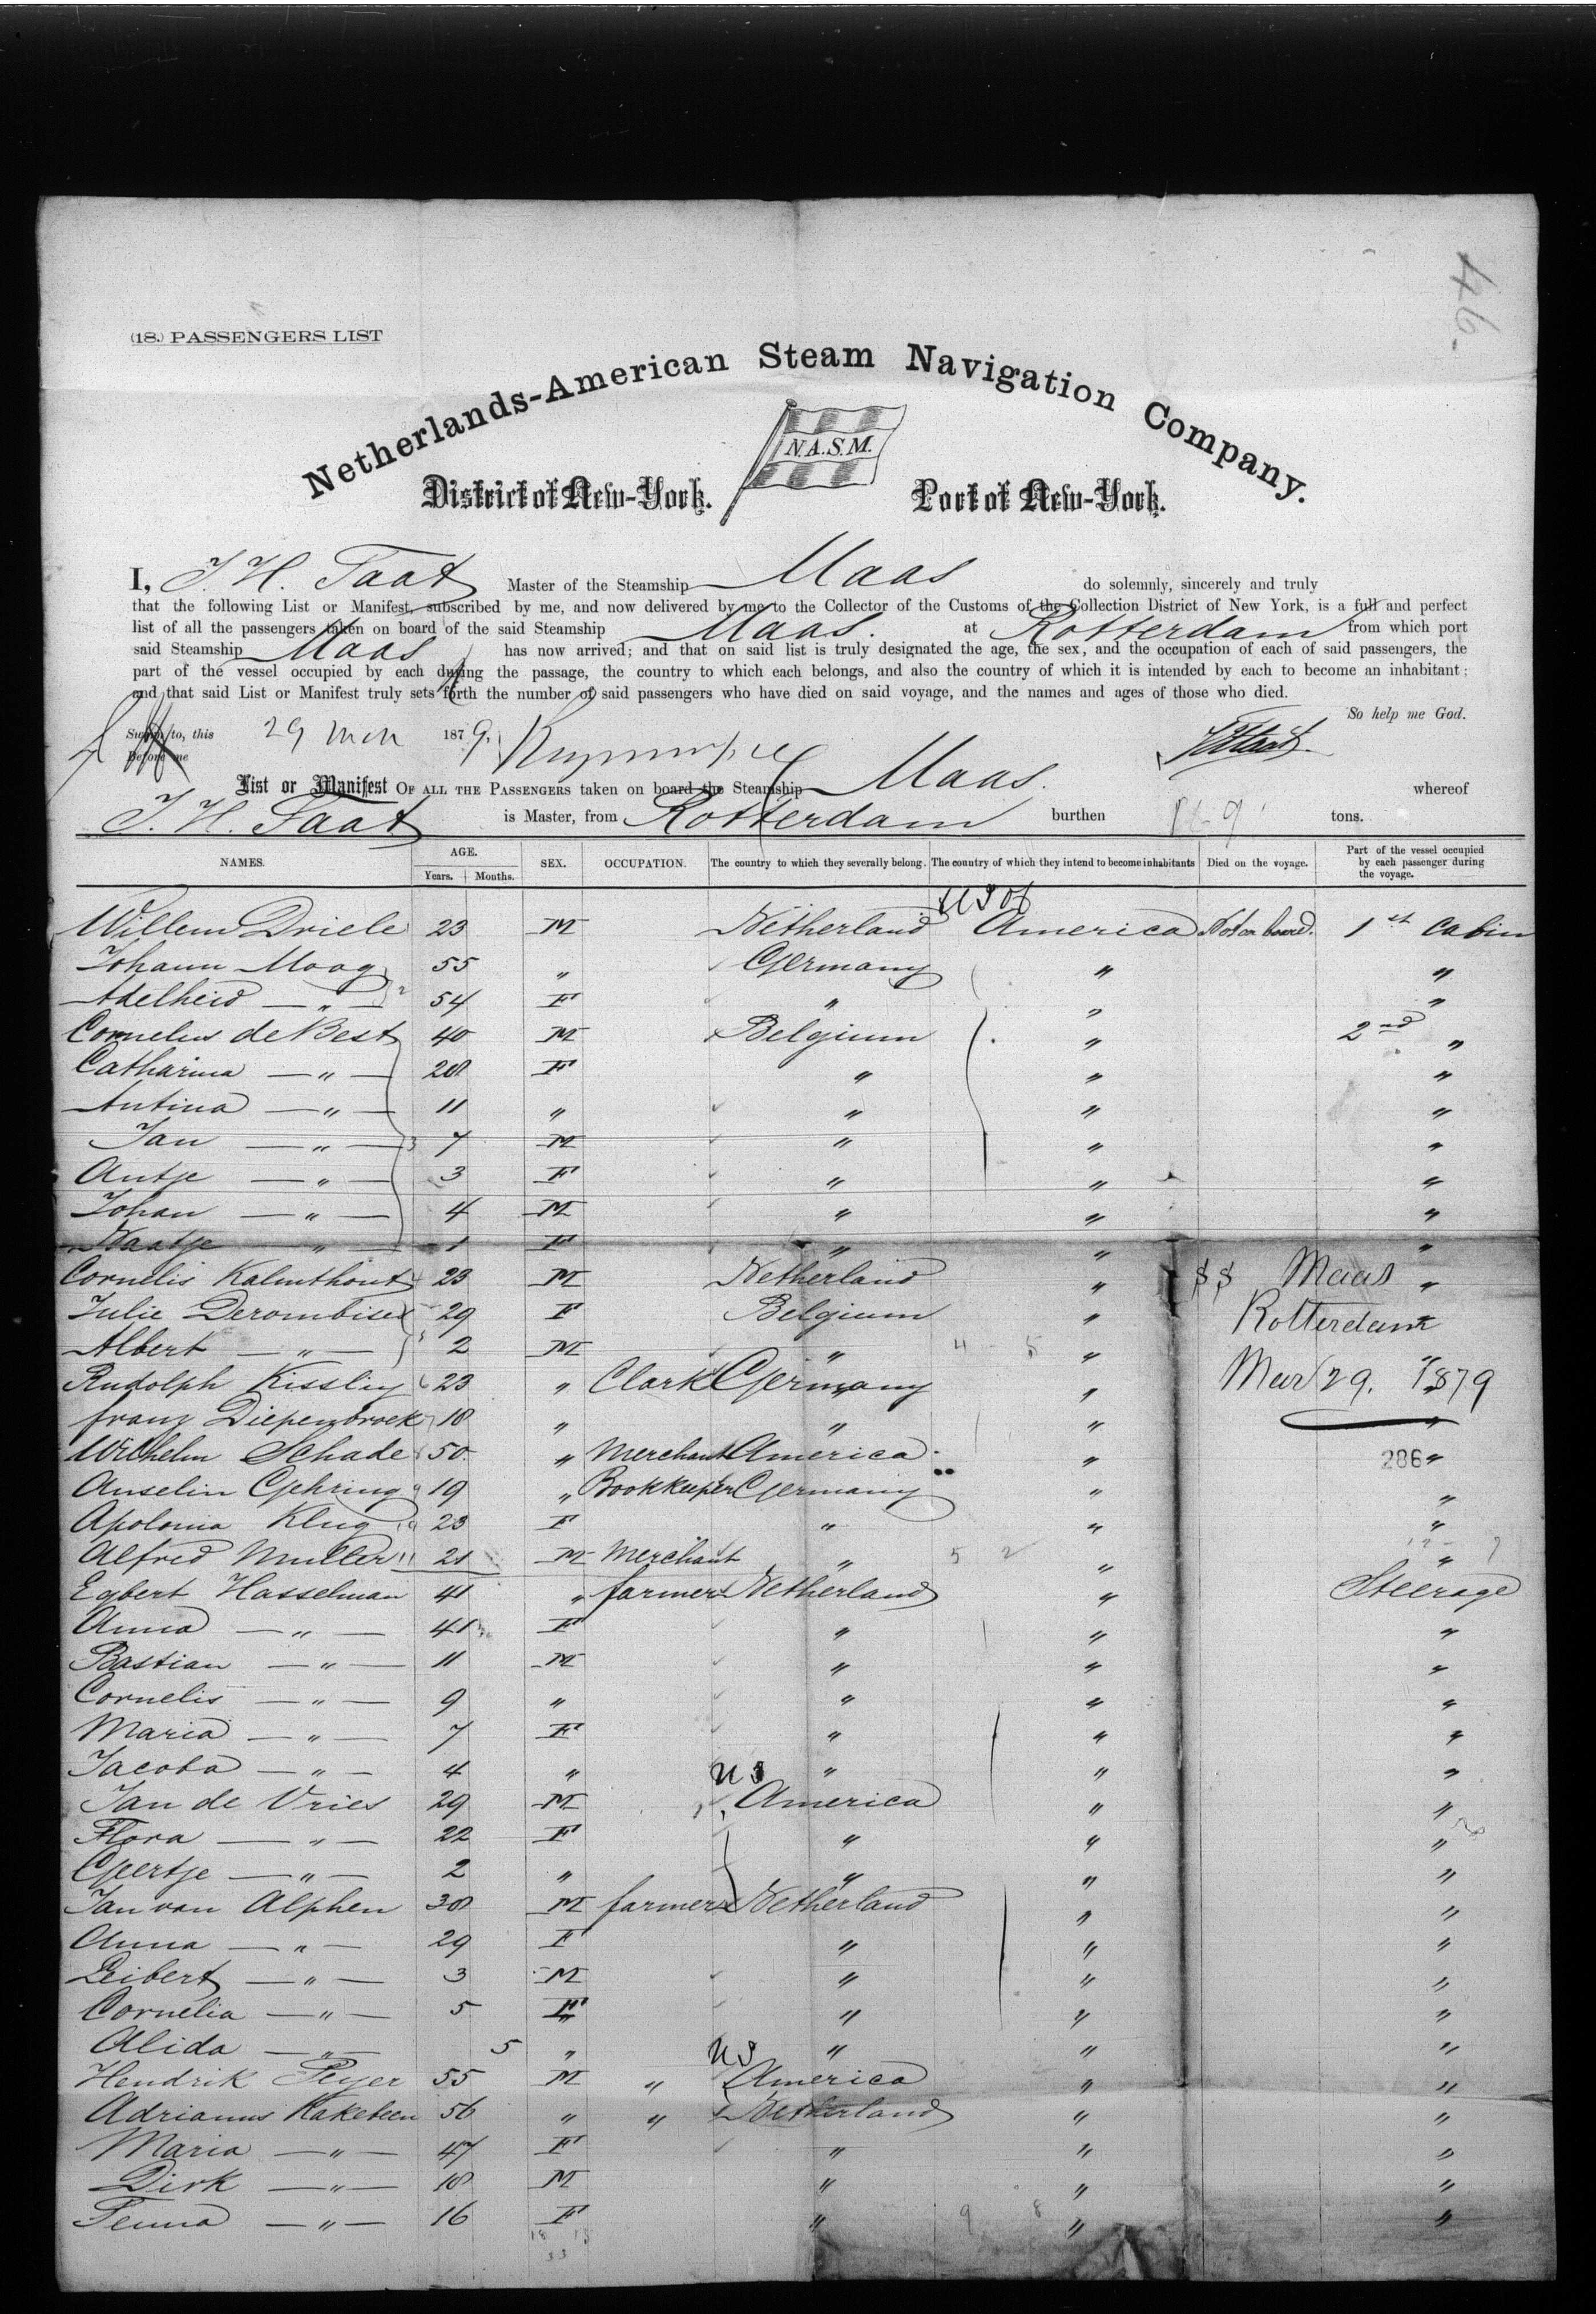 46.
(18.) PASSENGERS LIST
Netherlands-American Steam Navigation Company.
N.A.S.M.
District of New-York. Port of New-York.
I, J. H. Taat Master of the Steamship Maas do solemnly, sincerely and truly
that the following List or Manifest, subscribed by me, and now delivered by me to the Collector of the Customs of the Collection District of New York, is a full and perfect
list of all the passengers taken on board of the said Steamship Maas. at Rotterdam from which port
said Steamship Maas has now arrived; and that on said list is truly designated the age, the sex, and the occupation of each of said passengers, the
part of the vessel occupied by each during the passage, the country to which each belongs, and also the country of which it is intended by each to become an inhabitant;
and that said List or Manifest truly sets forth the number of said passengers who have died on said voyage, and the names and ages of those who died.
So help me God.
Sworn to, this 29 1879.
Before me
List or Manifest OF ALL THE PASSENGERS taken on board the Steamship Maas. whereof
J. H. Taat is Master, from Rotterdam burthen tons.
NAMES. AGE. Years. Months. SEX. OCCUPATION. The country to which they severally belong. The country of which they intend to become inhabitants Died on the voyage. Part of the vessel occupied by each passenger during the voyage.
US of
Willem Driele 23 M Netherland America Not on board. 1st Cabin
Johann Moog 55 " Germany " "
Adelheid — " — 2 54 F " " "
Cornelius de Best 40 M Belgium " 2nd "
Catharina — " — 28 F " " "
Antina — " — 11 " " " "
Jan — " — 3 7 M " " "
Antje — " — 3 F " " "
Johan — " — 4 M " " "
Naatje — " — 1 F " " "
Cornelis Kalmthout 4 23 M Netherland " "
SS Maas
Julie Derombise 29 F Belgium " "
Rotterdam
Albert — " — 5 2 M " " "
Rudolph Kissling 6 23 " Clark Germany " "
Mar 29. 1879
Franz Diepenbroek 7 18 " " " "
Wilhelm Schade 8 50. " Merchant America " "
286
Anselin Gehring 9 19 " Bookkeeper Germany " "
Apolonia Klug 10 23 F " " "
Alfred Muller 11 21 M Merchant " " "
Egbert Hasselman 41 " farmer Netherland " Steerage
Anna — " — 41 F " " "
Bastian — " — 11 M " " "
Cornelis — " — 9 " " " "
Maria — " — 7 F " " "
Jacoba — " — 4 " " " "
US
Jan de Vries 29 M America " "
Flora — " — 22 F " " "
Geertje — " — 2 " " " "
Jan van Alphen 38 M farmer Netherland " "
Anna — " — 29 F " " "
Leibert — " — 3 M " " "
Cornelia — " — 5 F " " "
Alida — " — 5 " " " "
US
Hendrik Peyer 55 M " America " "
Adrianus Kakebeen 56 " " Netherland " "
Maria — " — 47 F " " "
Dirk — " — 18 M " " "
Tenna — " — 16 F " " "